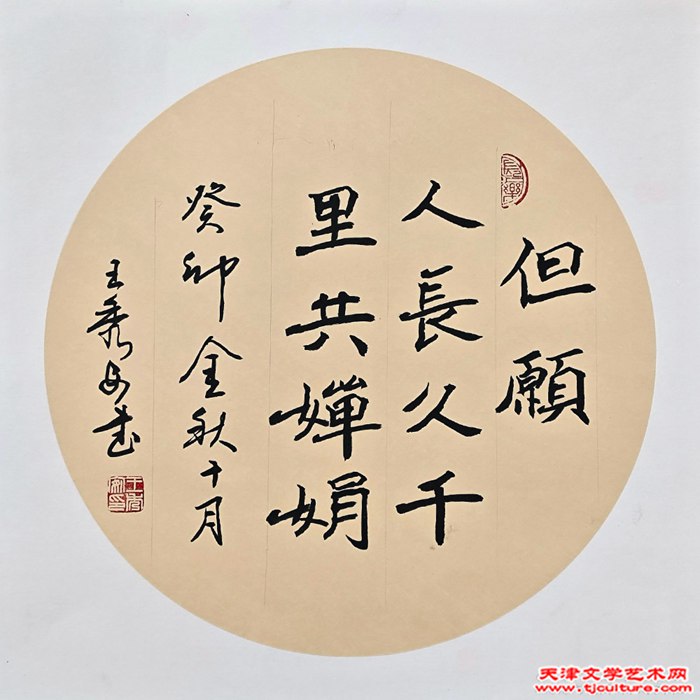 但願
人長久千
里共嬋娟
癸卯金秋十月
王秀安書
天津文学艺术网
www.tjculture.com